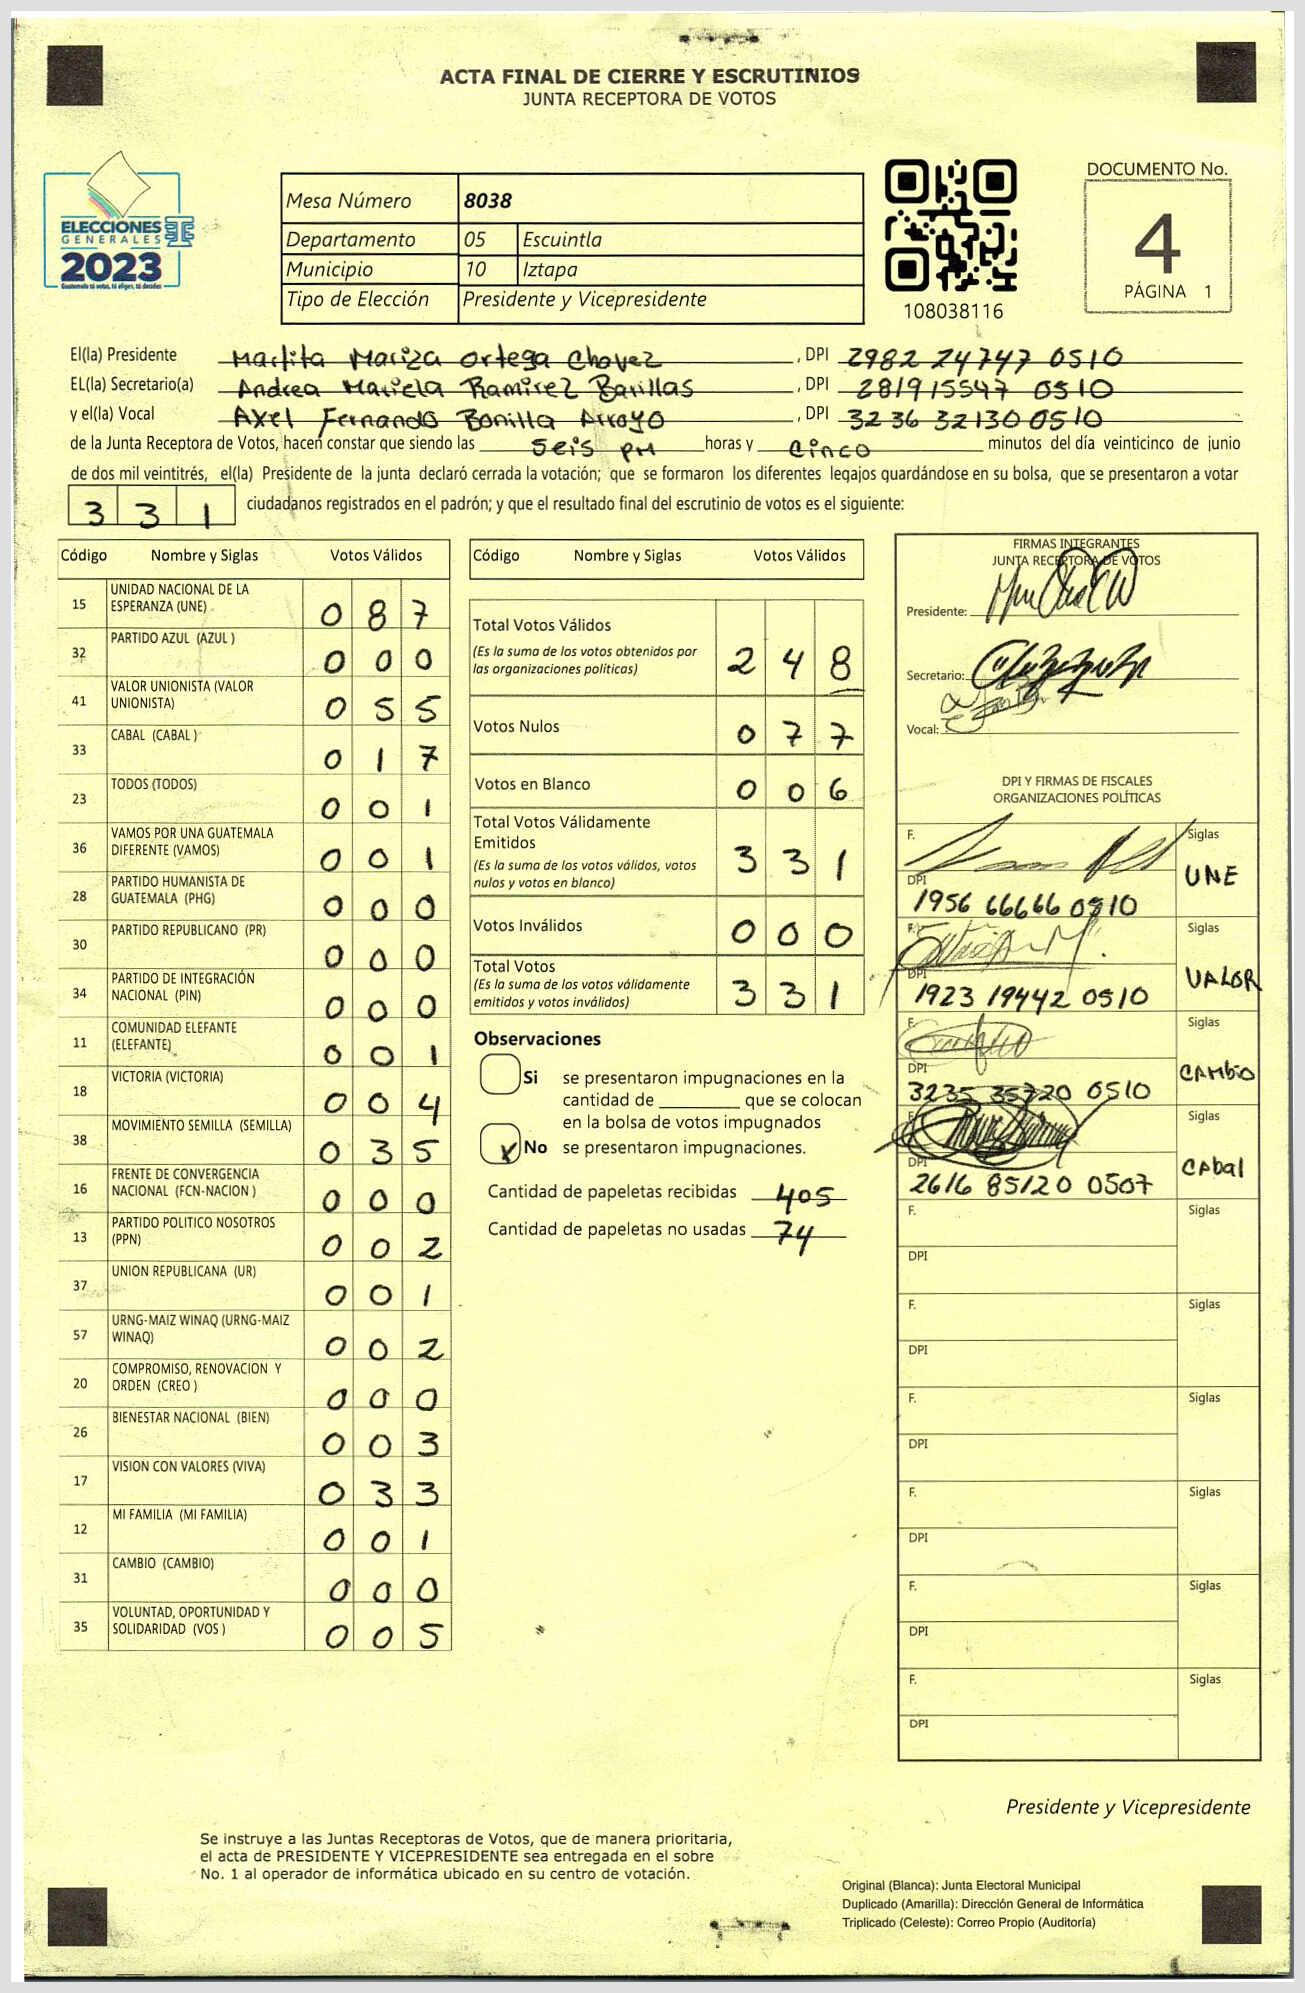 ACTA FINAL DE CIERRE Y ESCRUTINIOS
JUNTA RECEPTORA DE VOTOS
ELECCIONES
GENERALES
2023
Guatemala tú votas, tú eliges, tú decides
Mesa Número 8038
Departamento 05 Escuintla
Municipio 10 Iztapa
Tipo de Elección Presidente y Vicepresidente
108038116
DOCUMENTO No.
4
PÁGINA 1
El(la) Presidente Martita Mariza Ortega Chavez , DPI 2982 24747 0510
EL(la) Secretario(a) Andrea Mariela Ramirez Barillas , DPI 281915547 0510
y el(la) Vocal Axel Fernando Bonilla Arroyo , DPI 3236 32130 0510
de la Junta Receptora de Votos, hacen constar que siendo las seis pm horas y cinco minutos del día veinticinco de junio
de dos mil veintitrés, el(la) Presidente de la junta declaró cerrada la votación; que se formaron los diferentes legajos guardándose en su bolsa, que se presentaron a votar
331 ciudadanos registrados en el padrón; y que el resultado final del escrutinio de votos es el siguiente:
Código Nombre y Siglas Votos Válidos
15 UNIDAD NACIONAL DE LA ESPERANZA (UNE) 087
32 PARTIDO AZUL (AZUL ) 000
41 VALOR UNIONISTA (VALOR UNIONISTA) 055
33 CABAL (CABAL ) 017
23 TODOS (TODOS) 001
36 VAMOS POR UNA GUATEMALA DIFERENTE (VAMOS) 001
28 PARTIDO HUMANISTA DE GUATEMALA (PHG) 000
30 PARTIDO REPUBLICANO (PR) 000
34 PARTIDO DE INTEGRACIÓN NACIONAL (PIN) 000
11 COMUNIDAD ELEFANTE (ELEFANTE) 001
18 VICTORIA (VICTORIA) 004
38 MOVIMIENTO SEMILLA (SEMILLA) 035
16 FRENTE DE CONVERGENCIA NACIONAL (FCN-NACION ) 000
13 PARTIDO POLITICO NOSOTROS (PPN) 002
37 UNION REPUBLICANA (UR) 001
57 URNG-MAIZ WINAQ (URNG-MAIZ WINAQ) 002
20 COMPROMISO, RENOVACION Y ORDEN (CREO ) 000
26 BIENESTAR NACIONAL (BIEN) 003
17 VISION CON VALORES (VIVA) 033
12 MI FAMILIA (MI FAMILIA) 001
31 CAMBIO (CAMBIO) 000
35 VOLUNTAD, OPORTUNIDAD Y SOLIDARIDAD (VOS ) 005
Código Nombre y Siglas Votos Válidos
Total Votos Válidos
(Es la suma de los votos obtenidos por
las organizaciones políticas) 248
Votos Nulos 077
Votos en Blanco 006
Total Votos Válidamente
Emitidos
(Es la suma de los votos válidos, votos
nulos y votos en blanco) 331
Votos Inválidos 000
Total Votos
(Es la suma de los votos válidamente
emitidos y votos inválidos) 331
Observaciones
Si se presentaron impugnaciones en la
cantidad de ________ que se colocan
en la bolsa de votos impugnados
x No se presentaron impugnaciones.
Cantidad de papeletas recibidas 405
Cantidad de papeletas no usadas 74
FIRMAS INTEGRANTES
JUNTA RECEPTORA DE VOTOS
Presidente:
Secretario:
Vocal:
DPI Y FIRMAS DE FISCALES
ORGANIZACIONES POLÍTICAS
F. Siglas UNE
DPI 1956 66666 0510
F. Siglas VALOR
DPI 1923 19442 0510
F. Siglas CAMBIO
DPI 3235 35720 0510
F. Siglas Cabal
DPI 2616 85120 0507
F. Siglas
DPI
F. Siglas
DPI
F. Siglas
DPI
F. Siglas
DPI
F. Siglas
DPI
F. Siglas
DPI
Presidente y Vicepresidente
Se instruye a las Juntas Receptoras de Votos, que de manera prioritaria,
el acta de PRESIDENTE Y VICEPRESIDENTE sea entregada en el sobre
No. 1 al operador de informática ubicado en su centro de votación.
Original (Blanca): Junta Electoral Municipal
Duplicado (Amarilla): Dirección General de Informática
Triplicado (Celeste): Correo Propio (Auditoría)